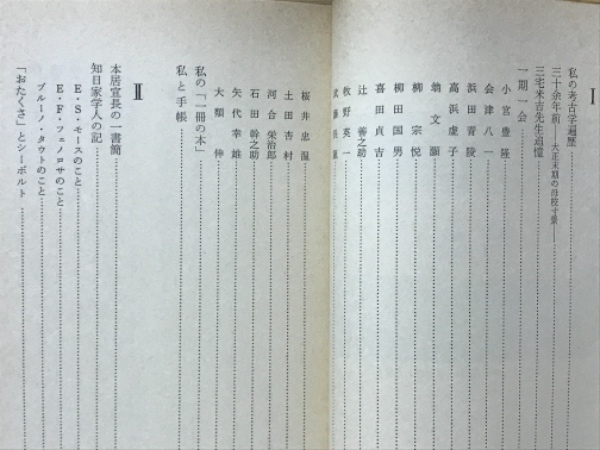 Ⅰ
私の考古学遍歴
三十余年前―大正末期の母校寸景―
三宅米吉先生追憶
一期一会
小宮豊隆
会津八一
浜田青陵
高浜虚子
翁文灝
柳宗悦
柳田国男
喜田貞吉
辻善之助
牧野英一
武藤長蔵
桜井忠温
土田杏村
河合栄治郎
石田幹之助
矢代幸雄
大類伸
私の「一冊の本」
私と手帳
Ⅱ
本居宣長の一書簡
知日家学人の記
E・S・モースのこと
E・F・フェノロサのこと
ブルーノ・タウトのこと
「おたくさ」とシーボルト